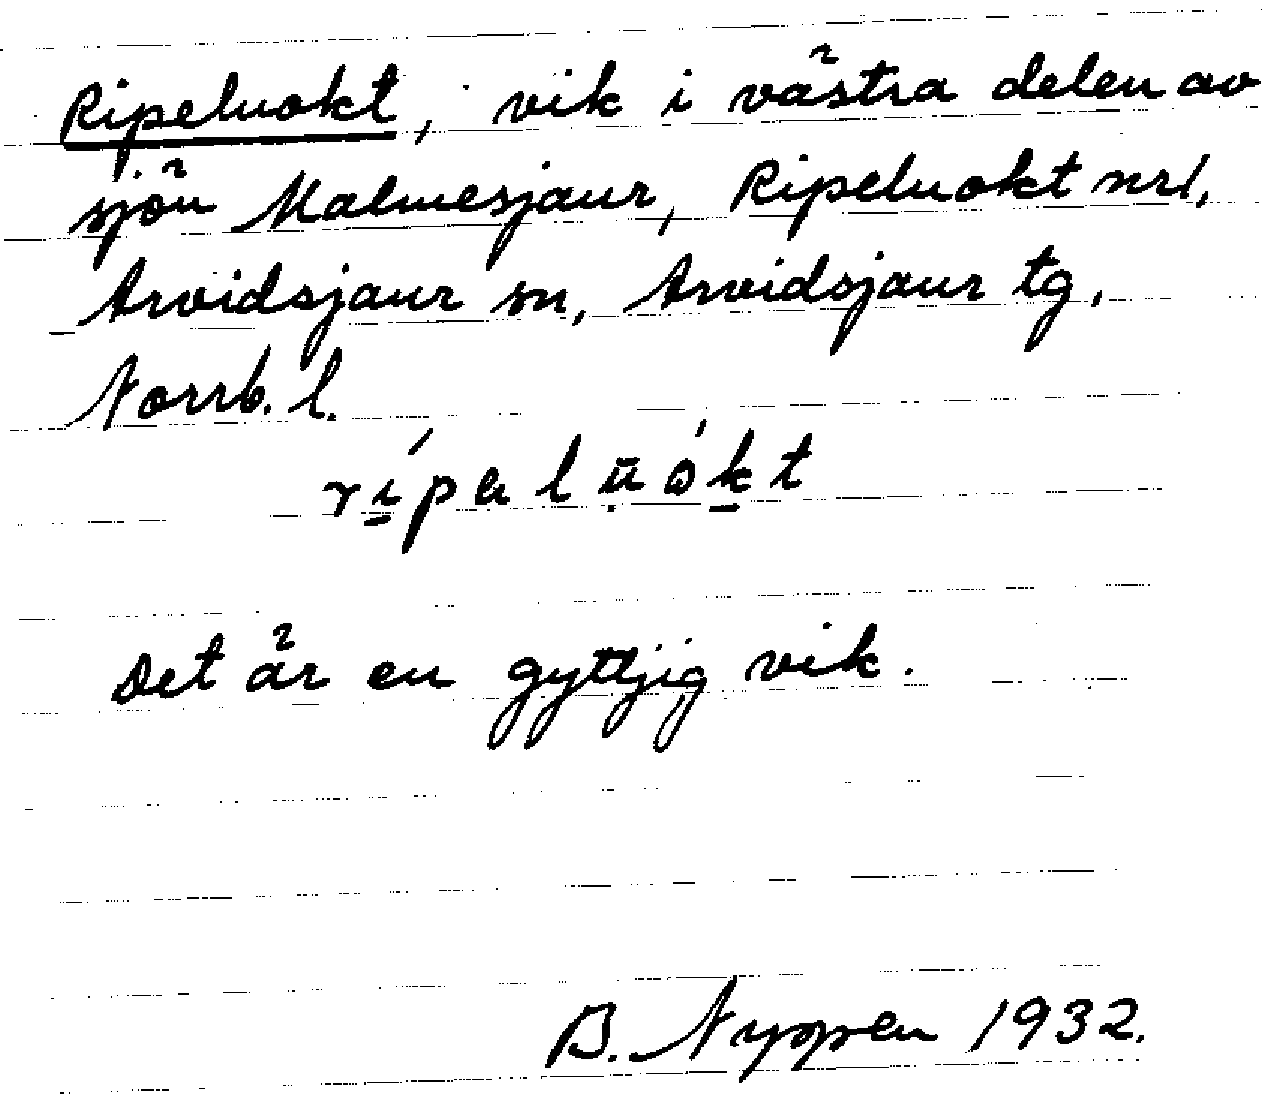 Ripeluokt, vik i västra delen av
sjön Malmesjaur, Ripeluokt nr1,
Arvidsjaur sn, Arvidsjaur tg,
Norrb. l.
Det är en gyttjig vik.
B. Nyppen 1932.